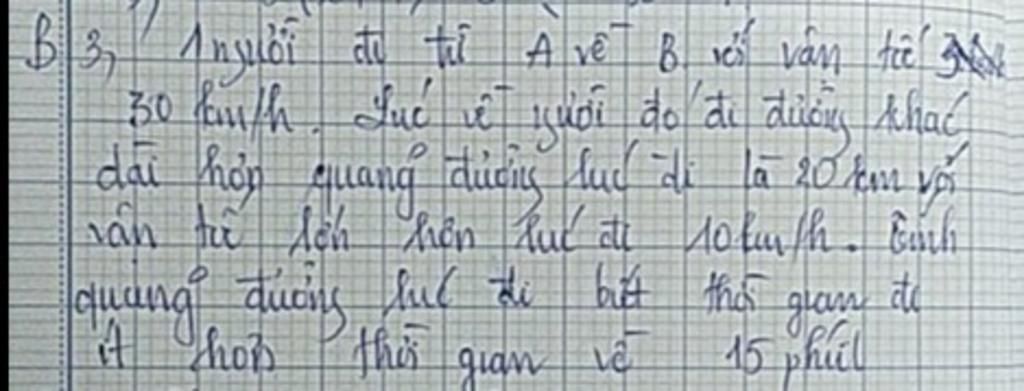 B 3, 1 người đi từ A về B với vân tốc
30 km/h. Lúc về người đó đi đường khác
dài hơn quãng đường lúc đi là 20 km với
vân tốc lớn hơn lúc đi 10 km/h. Tính
quãng đường lúc đi biết thời gian đi
ít hơn thời gian về 15 phút